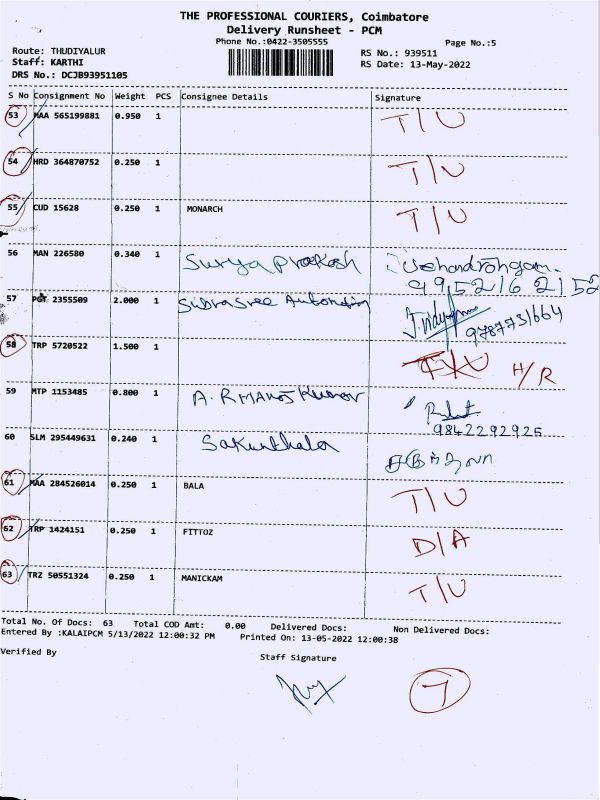 THE PROFESSIONAL COURIERS, Coimbatore
Delivery Runsheet - PCM
Phone No.:0422-3505555
Page No.:5
Route: THUDIYALUR
RS No.: 939511
Staff: KARTHI
RS Date: 13-May-2022
DRS No.: DCJB93951105
S No Consignment No Weight PCS Consignee Details Signature
53 MAA 565199881 0.950 1 T/U
54 HRD 364870752 0.250 1 T/U
55 CUD 15628 0.250 1 MONARCH T/U
56 MAN 226580 0.340 1 Surya Prakash
9952162152
57 PGT 2355509 2.000 1 Subrasree Automation
9787731664
58 TRP 5720522 1.500 1 T/U H/R
59 MTP 1153485 0.800 1 A.R MANOJ Kumar
9842292925
60 SLM 295449631 0.240 1 Sakunthala
61 MAA 284526014 0.250 1 BALA T/U
62 TRP 1424151 0.250 1 FITTOZ D/A
63 TRZ 50551324 0.250 1 MANICKAM T/U
Total No. Of Docs: 63 Total COD Amt: 0.00 Delivered Docs: Non Delivered Docs:
Entered By :KALAIPCM 5/13/2022 12:00:32 PM Printed On: 13-05-2022 12:00:38
Verified By
Staff Signature
7